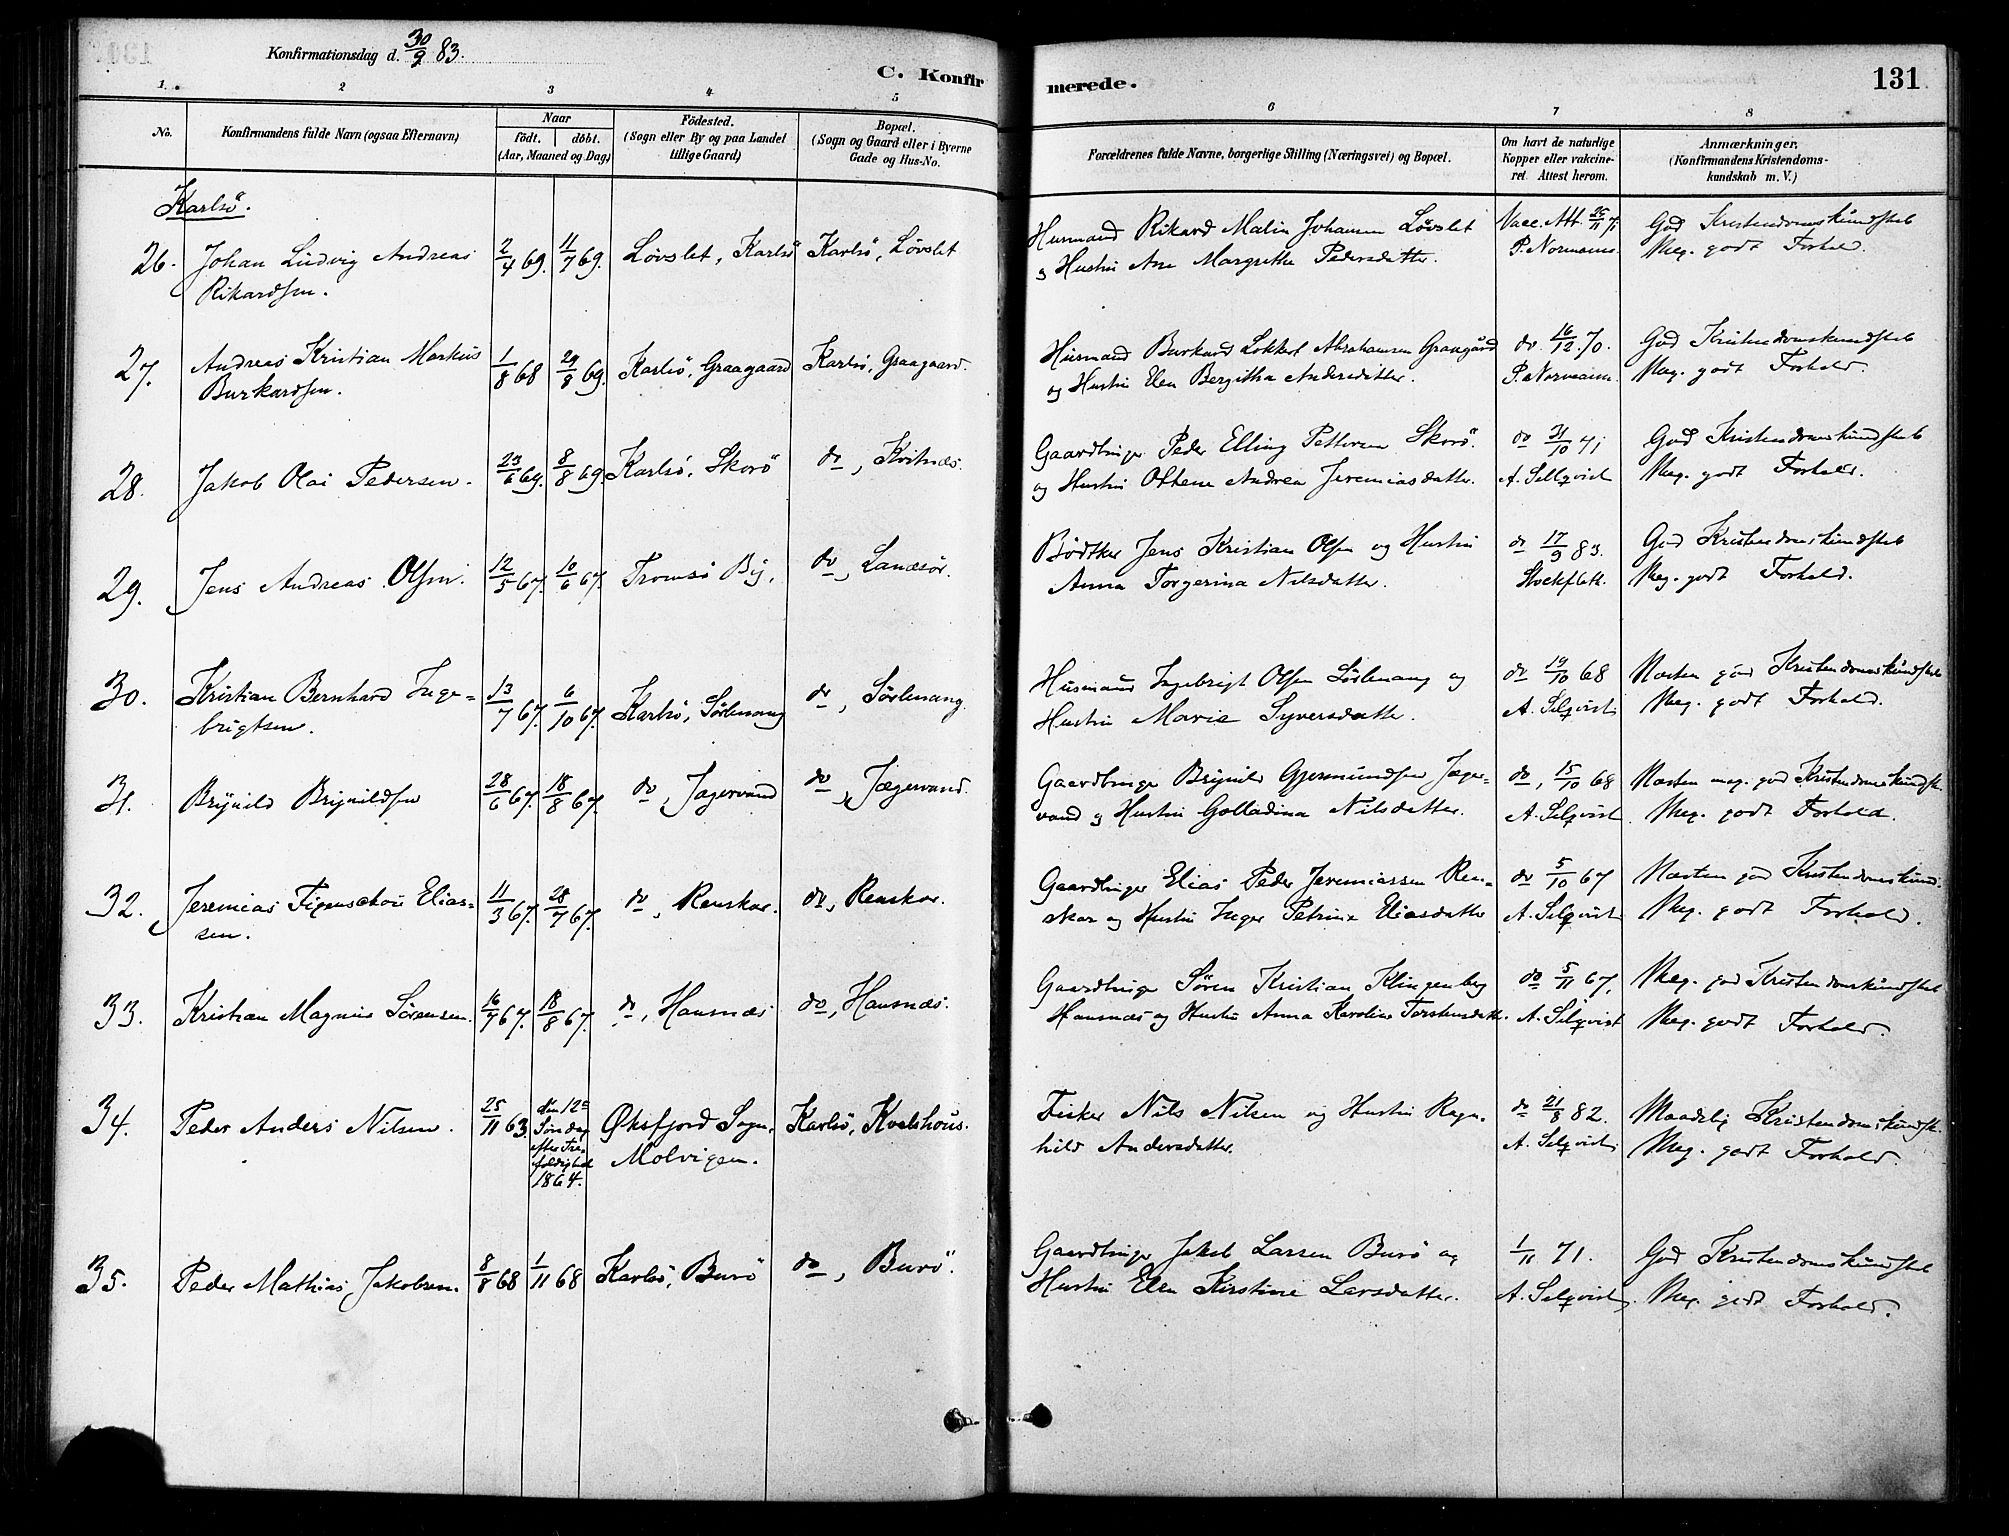 Konfirmationsdag d. 30/9 83.
C. Konfirmerede.
131
1. 2 3 4 5 6 7 8
No.
Konfirmandens fulde Navn (ogsaa Efternavn)
Naar
födt. döbt.
(Aar, Maaned og Dag)
Födested.
(Sogn eller By og paa Landet
tillige Gaard)
Bopæl.
(Sogn og Gaard eller i Byerne
Gade og Hus-No.
Forældrenes fulde Navne, borgerlige Stilling (Næringsvei) og Bopæl.
Om havt de naturlige
Kopper eller vakcine-
ret. Attest herom.
Anmærkninger.
(Konfirmandens Kristendoms-
kundskab m. V.)
Karlsö.
26. Johan Ludvig Andreas 2/4 69. 11/7 69. Lövslet, Karlsö Karlsö, Lövslet Husmand Rikard Malin Johansen Lövslet Vacc. Att. 25/11 71 God Kristendomskundskab
Rikardsen. og Hustru Ane Margrethe Pedersdatter. P. Normann. Meg. godt Forhold.
27. Andreas Kristian Markus 1/8 68 29/8 69. Karlsö, Graagaard Karlsö, Graagaard. Husmand Burkard Lokkert Abrahamsen Graagård do 16/12 70. God Kristendomskundskab
Burkardsen. og Hustru Elen Bergitha Andersdatter. P. Normann. Meg. godt Forhold.
28. Jakob Olai Pedersen. 23/6 69. 8/8 69 Karlsö, Skorö do, Kvitnæs. Gaardbruger Peder Elling Pettersen Skorö do 31/10 71 God Kristendomskundskab
og Hustru Othene Andrea Jeremiasdatter. A. Sellqvist Meg. godt Forhold.
29. Jens Andreas Olsen. 12/5 67. 10/6 67. Tromsö By, do, Landsör. Bödker Jens Kristian Olsen og Hustru do 17/9 83. God Kristendomskundskab
Anna Torgerina Nilsdatter. Stockfleth. Meg. godt Forhold.
30. Kristian Bernhard Inge- 13/7 67. 6/10 67. Karlsö, Sörlenang do, Sörlenang. Husmand Ingebrigt Olsen Sörlenang og do 19/10 68 Næsten god Kristendomskundskab
brigtsen. Hustru Marie Syversdatter. A. Selqvist Meg. godt Forhold.
31. Brynild Brynildsen 28/6 67. 18/8 67. do, Jægervand do, Jægervand. Gaardbruger Brynild Gjermundsen Jæger- do, 15/10 68 Næsten meg. god Kristendomskundsk.
vand og Hustru Golladina Nilsdatter. A. Selqvist. Meg. godt Forhold.
32. Jeremias Figenschou Elias- 11/3 67. 28/7 67. do, Renskar. do, Renskar. Gaardbruger Elias Peder Jeremiassen Ren- do 5/10 67 Næsten god Kristendomskund.
sen. skar og Hustru Inger Petrine Eliasdatter A. Selqvist Meg. godt Forhold.
33. Kristian Magnus Sörensen. 16/7 67. 18/8 67. do, Hansnæs do, Hansnæs. Gaardbruger Sören Kristian Klingenberg do 5/11 67, Meg. god Kristendomskundskab
Hansnæs og Hustru Anna Karoline Torstensdatt. A. Selqvist Meg. godt Forhold.
34. Peder Anders Nilsen. 25/11 63. den 12te Øksfjord Sogn, Karlsö, Kvalshous. Fisker Nils Nilsen og Hustru Ragn- do 21/8 82. Maadelig Kristendomskundsk.
Söndag Molvigen. hild Andersdatter. A. Selqvist Meg. godt Forhold.
efter Tre-
foldighed
1864.
35. Peder Mathias Jakobsen. 8/8 68 1/11 68 Karlsö, Burö do, Burö. Gaardbruger Jakob Larsen Burö og 1/11 71. God Kristendomskundskab
Hustru Elen Kirstine Larsdatter. A. Selqvist. Meg. godt Forhold.